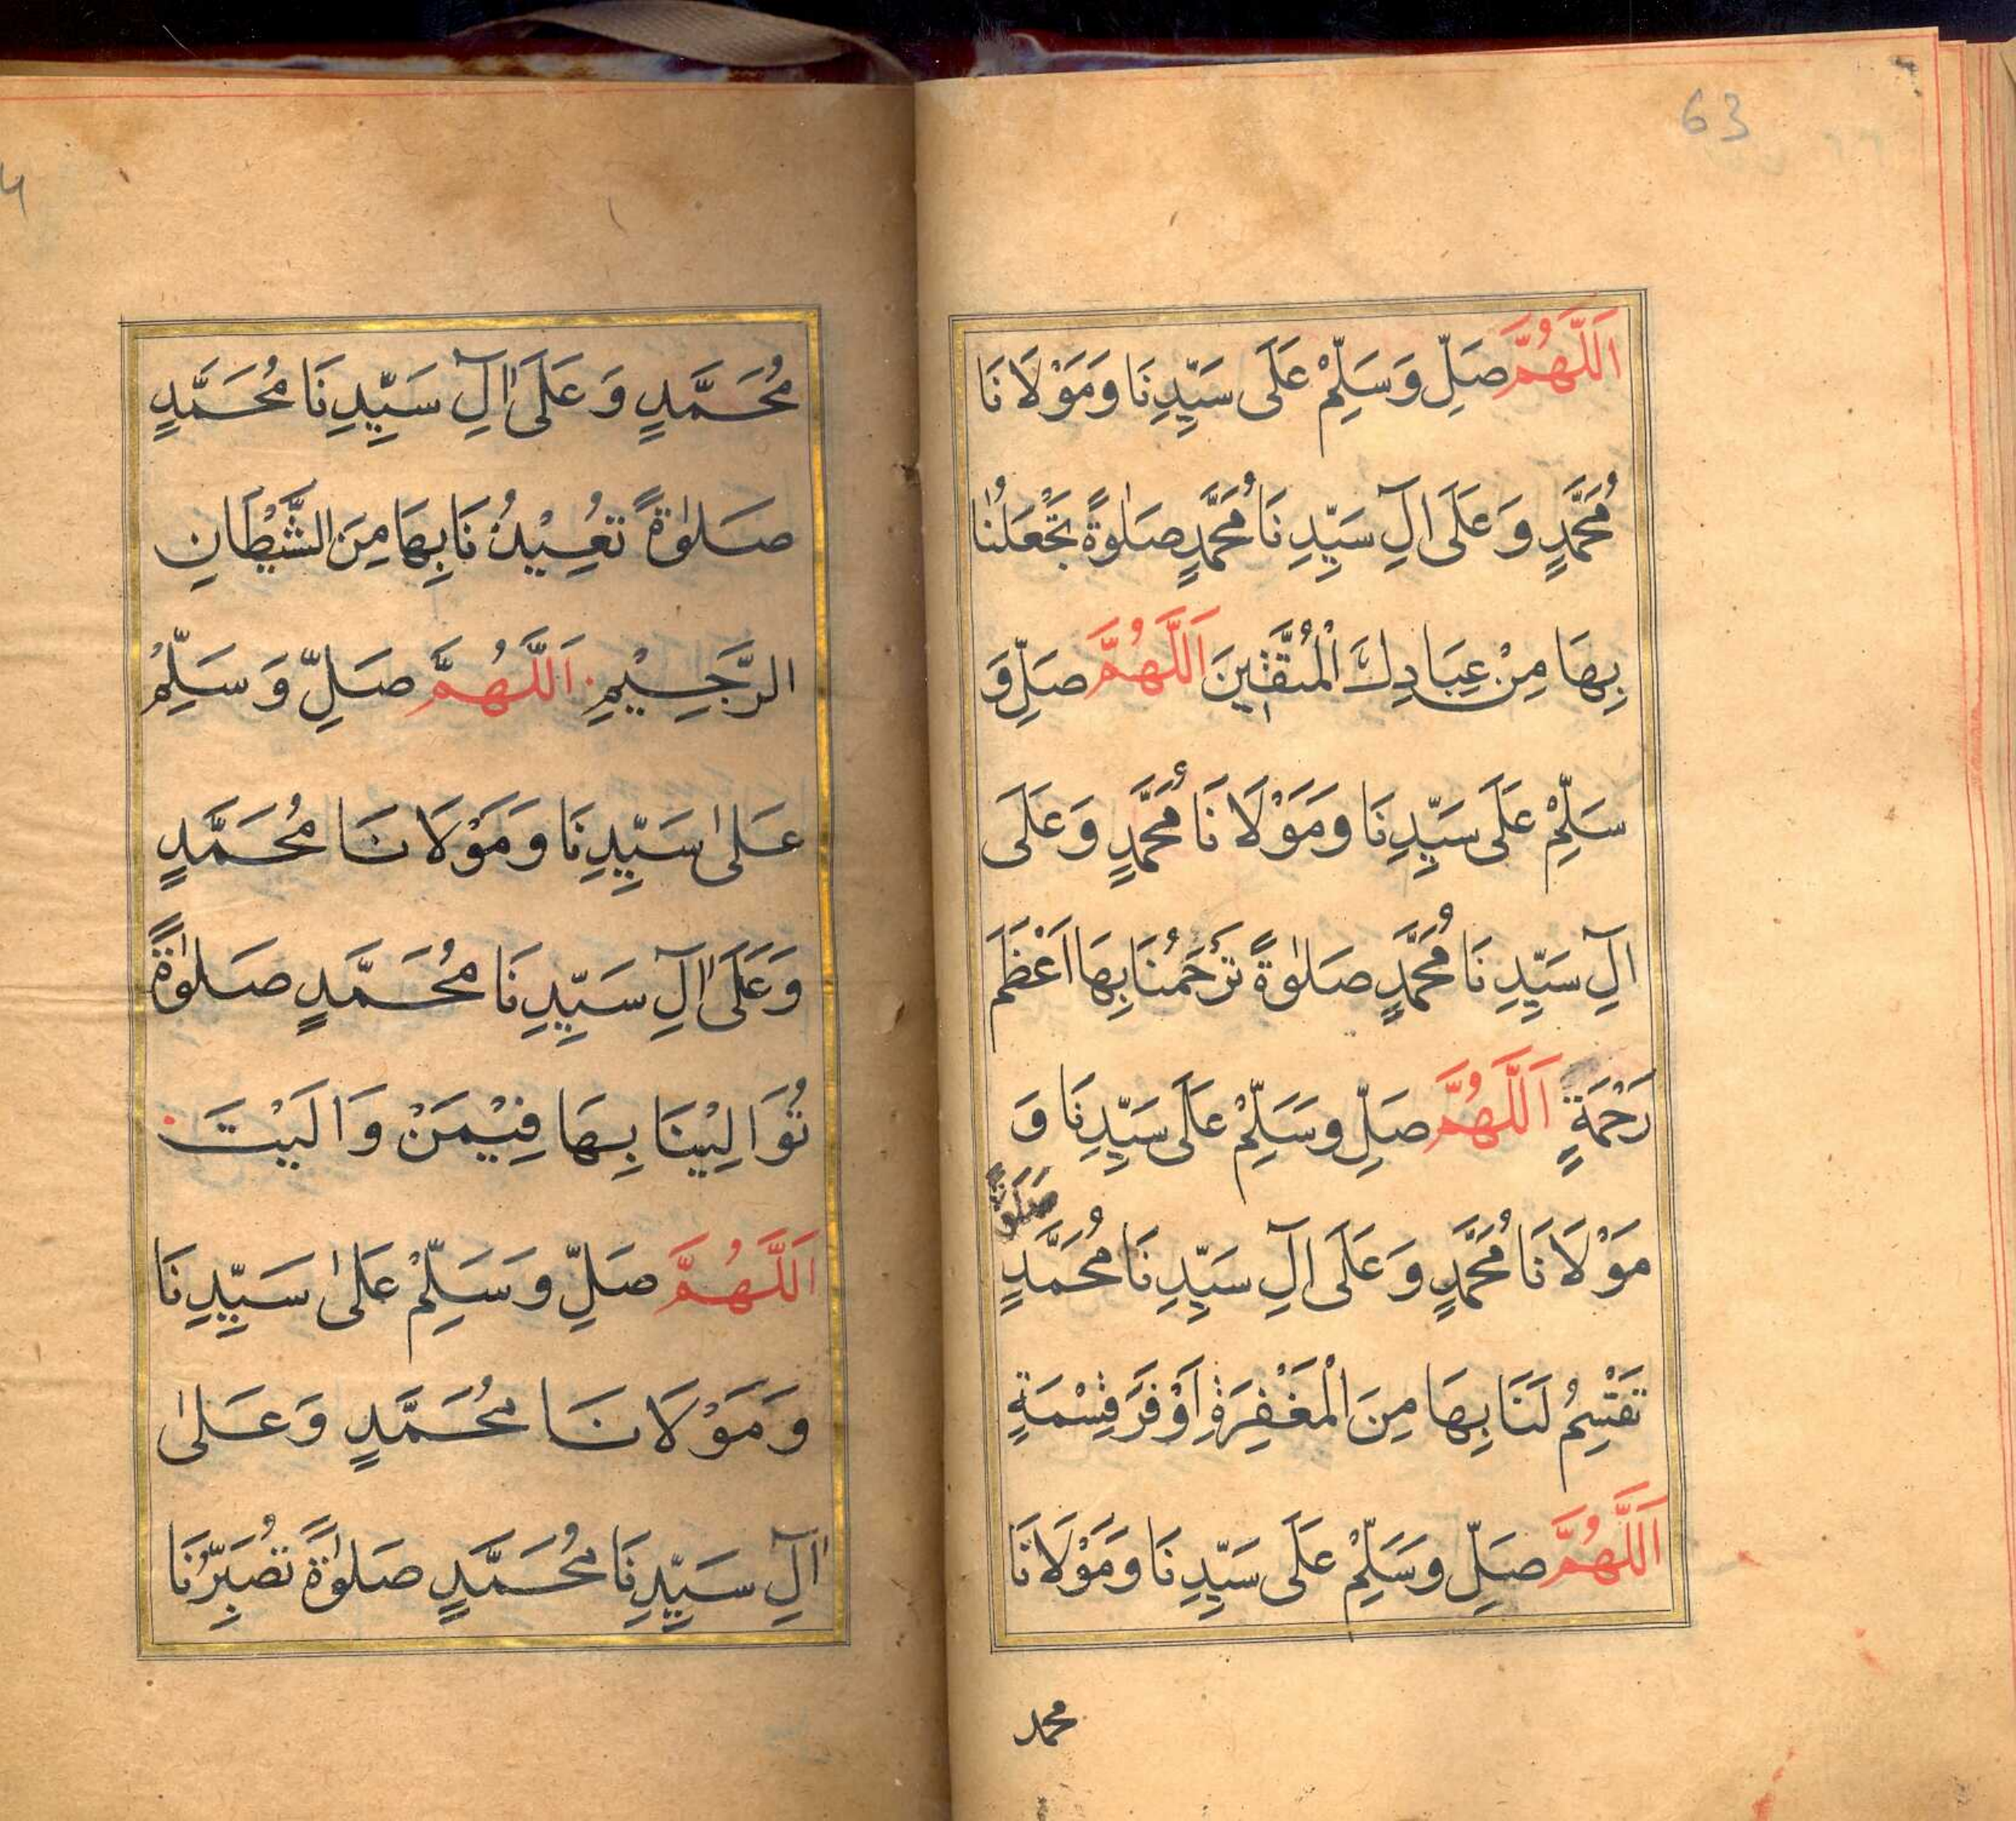 63
اَللّٰهُمَّ صَلِّ وَسَلِّمْ عَلَى سَيِّدِنَا وَمَوْلَانَا
مُحَمَّدٍ وَعَلَى اٰلِ سَيِّدِنَا مُحَمَّدٍ صَلٰوةً تَجْعَلُنَا
بِهَا مِنْ عِبَادِكَ الْمُتَّقِينَ اَللّٰهُمَّ صَلِّ وَ
سَلِّمْ عَلَى سَيِّدِنَا وَمَوْلَانَا مُحَمَّدٍ وَعَلَى
اٰلِ سَيِّدِنَا مُحَمَّدٍ صَلٰوةً تَرْحَمُنَا بِهَا اَعْظَمَ
رَحْمَةٍ اَللّٰهُمَّ صَلِّ وَسَلِّمْ عَلَى سَيِّدِنَا وَ
مَوْلَانَا مُحَمَّدٍ وَعَلَى اٰلِ سَيِّدِنَا مُحَمَّدٍ صَلٰوةً
تَقْسِمُ لَنَا بِهَا مِنَ الْمَغْفِرَةِ اَوْفَرَ قِسْمَةٍ
اَللّٰهُمَّ صَلِّ وَسَلِّمْ عَلَى سَيِّدِنَا وَمَوْلَانَا
محمد
مُحَمَّدٍ وَعَلَى اٰلِ سَيِّدِنَا مُحَمَّدٍ
صَلٰوةً تُعِيْذُنَا بِهَا مِنَ الشَّيْطَانِ
الرَّجِيْمِ اَللّٰهُمَّ صَلِّ وَسَلِّمْ
عَلٰى سَيِّدِنَا وَمَوْلَانَا مُحَمَّدٍ
وَعَلَى اٰلِ سَيِّدِنَا مُحَمَّدٍ صَلٰوةً
تُوَالِيْنَا بِهَا فِيْمَنْ وَالَيْتَ
اَللّٰهُمَّ صَلِّ وَسَلِّمْ عَلٰى سَيِّدِنَا
وَمَوْلَانَا مُحَمَّدٍ وَعَلٰى
اٰلِ سَيِّدِنَا مُحَمَّدٍ صَلٰوةً تُصَبِّرُنَا